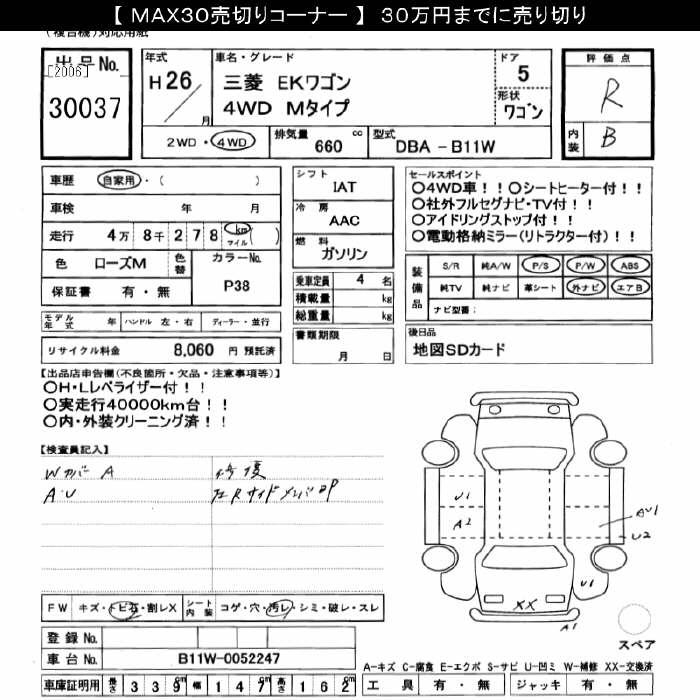 【 MAX30売切りコーナー 】 30万円までに売り切り
(複合機)対応用紙
出品No.
[2006]
30037
年式
H26
月
車名・グレード
三菱 EKワゴン
4WD Mタイプ
ドア
5
形状
ワゴン
評価点
R
内装
B
2WD・4WD
排気量
660
cc
型式
DBA - B11W
車歴 自家用・( )
車検 年 月
走行 4万 8千 2 7 8 km マイル( )
色 ローズM 色替 カラーNo. P38
保証書 有・無
モデル年式 年 ハンドル 左・右 ディーラー・並行
リサイクル料金 8,060 円 預託済
シフト
IAT
冷房
AAC
燃料
ガソリン
乗車定員 4 名
積載量 kg
総重量 kg
書類期限
月 日
セールスポイント
〇4WD車!!〇シートヒーター付!!
〇社外フルセグナビ・TV付!!
〇アイドリングストップ付!!
〇電動格納ミラー(リトラクター付)!!
装備品
S/R 純A/W P/S P/W ABS
純TV 純ナビ 革シート 外ナビ エアB
ナビ型番:
後日品
地図SDカード
【出品店申告欄(不良箇所・欠品・注意事項等)】
〇H・Lレベライザー付!!
〇実走行40000km台!!
〇内・外装クリーニング済!!
【検査員記入】
Wカバー A
A・U
修復
左Rサイドメンバー凹P
U1
A2
AU1
U2
U1
XX
A1
スペア
FW キズ・トビ石・割レX シート内装 コゲ・穴・汚レ・シミ・破レ・スレ
登録 No.
車台 No. B11W-0052247
車庫証明用 長さ 3 3 9 cm 幅 1 4 7 cm 高さ 1 6 2 cm
A-キズ C-腐食 E-エクボ S-サビ U-凹ミ W-補修 XX-交換済
工具 有・無 ジャッキ 有・無